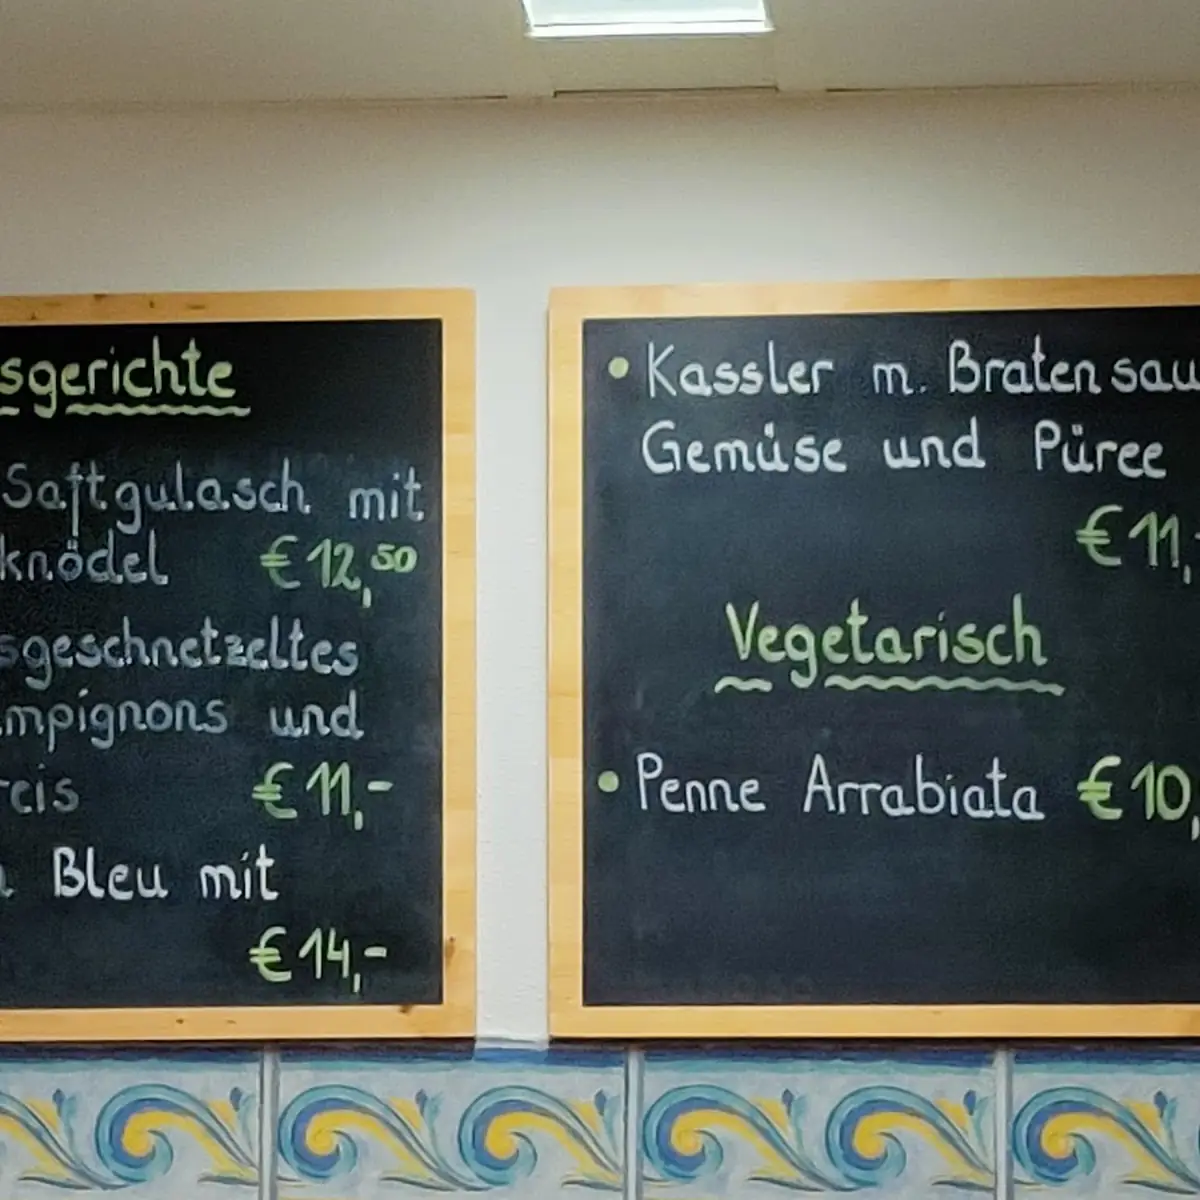 sgerichte
Saftgulasch mit
knödel €12,50
sgeschnetzeltes
mpignons und
reis €11,-
Bleu mit
€14,-
• Kassler m. Bratensau
Gemüse und Püree
€11,-
Vegetarisch
• Penne Arrabiata €10,